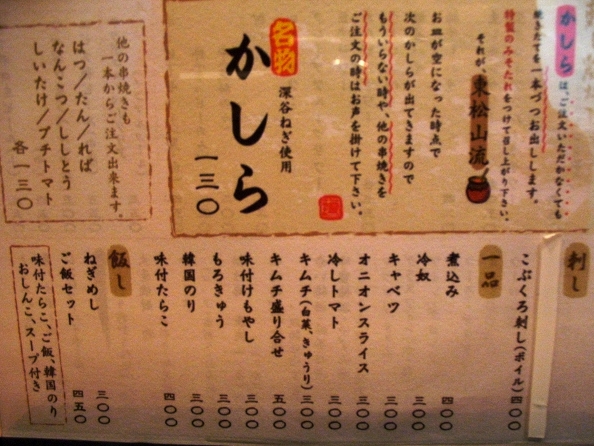 かしらは、ご注文いただかなくても
焼きたてを一本づつお出しします。
特製のみそたれをつけて召し上がり下さい。
それが、東松山流
お皿が空になった時点で
次のかしらが出てきますので
もういらない時や、他の串焼きを
ご注文の時はお声を掛けて下さい。
名物
かしら
深谷ねぎ使用
一三〇
他の串焼きも
一本からご注文出来ます。
はつ/たん/れば
なんこつ/ししとう
しいたけ/プチトマト
各一三〇
刺し
こぶくろ刺し(ボイル) 四〇〇
一品
煮込み 四〇〇
冷奴 三〇〇
キャベツ 三〇〇
オニオンスライス 三〇〇
冷しトマト 三〇〇
キムチ(白菜、きゅうり) 三〇〇
キムチ盛り合せ 五〇〇
味付けもやし 三〇〇
もろきゅう 三〇〇
韓国のり 三〇〇
味付たらこ 四〇〇
飯し
ねぎめし 三〇〇
ご飯セット 四五〇
味付たらこ、ご飯、韓国のり
おしんこ、スープ付き